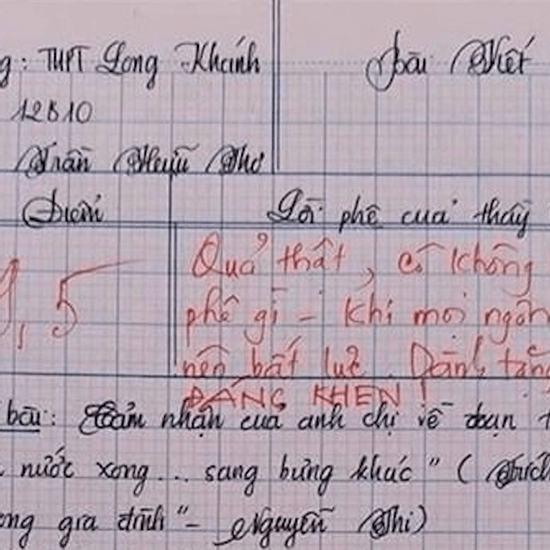 g: THPT Long Khánh
Bài Viết
12B10
Trần Hữu Thơ
Điểm
Lời phê của thầy
9,5
Quả thật, cô không
phê gì - khi mọi ngôn
nên bất lực. Dành tặng
ĐÁNG KHEN!
bài: Cảm nhận của anh chị về đoạn t
nước xong... sang bưng khác" (
ng gia đình" - Nguyễn Thi)